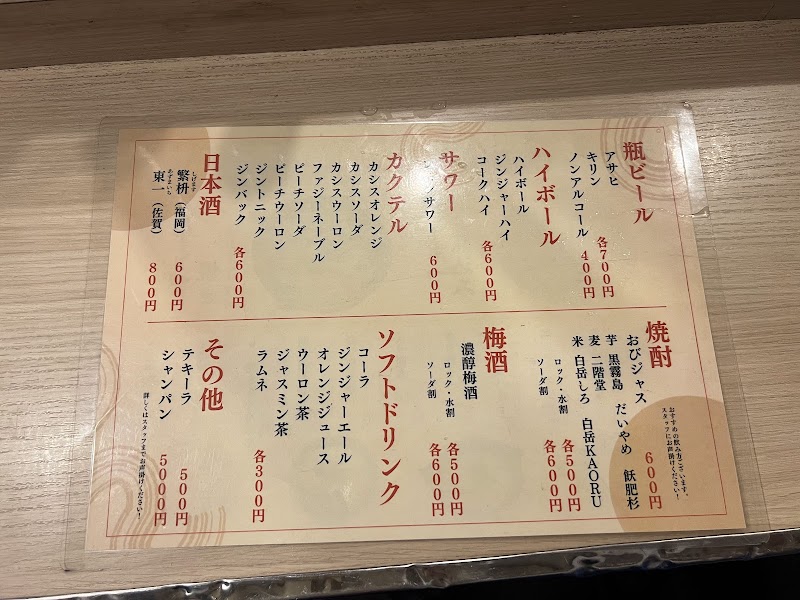 瓶ビール
アサヒ
キリン
各700円
ノンアルコール
400円
ハイボール
ハイボール
ジンジャーハイ
コークハイ
各600円
サワー
サワー
600円
カクテル
カシスオレンジ
カシスソーダ
カシスウーロン
ファジーネーブル
ピーチソーダ
ピーチウーロン
ジントニック
ジンバック
各600円
日本酒
繁枡（福岡）
しげます
600円
東一（佐賀）
あずまいち
800円
焼酎
おびジャス
600円
おすすめの飲み方ございます。
スタッフにお声掛けください！
芋 黒霧島 だいやめ 飫肥杉
麦 二階堂
米 白岳しろ 白岳KAORU
ロック・水割
各500円
ソーダ割
各600円
梅酒
濃醇梅酒
ロック・水割
各500円
ソーダ割
各600円
ソフトドリンク
コーラ
ジンジャーエール
オレンジジュース
ウーロン茶
ジャスミン茶
ラムネ
各300円
その他
テキーラ
500円
シャンパン
5000円
詳しくはスタッフまでお声掛けください！